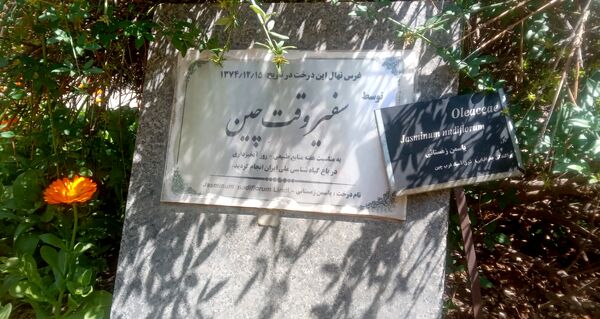 غرس نهال این درخت در تاریخ ۱۳۷۴/۱۲/۱۵
توسط
سفیر وقت چین
به مناسبت هفته منابع طبیعی - روز آبخیزداری
در باغ گیاه شناسی ملی ایران انجام گردید.
نام درخت : یاسمن زمستانی - Jasminum nudiflorum
Oleaceae
Jasminum nudiflorum
یاسمن زمستانی
غرب چین